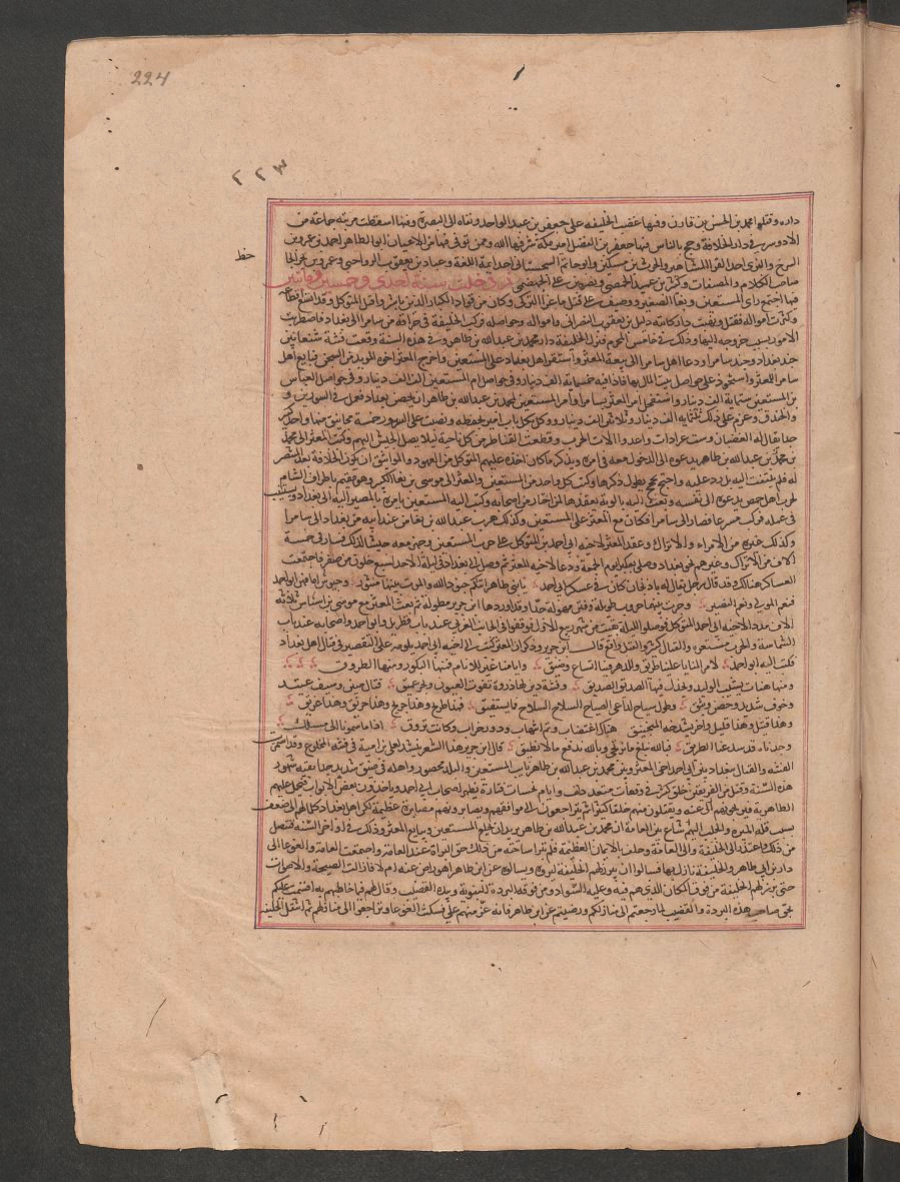 224
٢٢٣
داره وقتله احمد بن الحسن بن قارن وفيها غضب الخليفة على جعفر بن عبد الواحد ونفاه الى البصرة وفيها اسقطت مرتبة جماعة من
الامويين في دار الخلافة وحج بالناس فيها جعفر بن الفضل امير مكة شرفها الله وممن توفى فيها من الاعيان ابو الطاهر احمد بن عمرو بن
السرح والبزي احد القرا المشاهير والحرث بن مسكين وابو حاتم السجستاني احد ايمة اللغة وعباد بن يعقوب الرواجني وعمرو بن بحر الجا
حظ
صاحب الكلام والمصنفات وكثير بن عبيد الحمصي ونصر بن علي الجهضمي ثم دخلت سنة احدى وخمسين وماتين
فيها اجتمع راى المستعين وبغا الصغير ووصيف على قتل باغر التركي وكان من قواد الكبار الذين باشروا قتل المتوكل وقد اتسع اقطاعه
وكثرت امواله فقتل ونهبت دار كاتبه دليل بن يعقوب النصراني وامواله وحواصله وركب الخليفة في حراقة من سامرا الى بغداد فاضطربت
الامور بسبب خروجه اليها وذلك في خامس المحرم فنزل الخليفة دار محمد بن عبد الله بن طاهر وفي هذه السنة وقعت فتنة شنعا بين
جند بغداد وجند سامرا ودعا اهل سامرا الى بيعة المعتز واستقر اهل بغداد على المستعين واخرج المعتز واخوه المويد من السجن فبايع اهل
سامرا المعتز واستحوذ على حواصل بيت المال بها فاذا فيه خمسماية الف دينار وفي حواصل ام المستعين الف الف دينار وفي حواصل العباس
بن المستعين ستماية الف دينار واستفحل امر المعتز بسامرا وامر المستعين لمحمد بن عبد الله بن طاهر ان يحصن بغداد فعمل في السورين و
والخندق وغرم على ذلك ثلثماية الف دينار وثلاثون الف دينار ووكل بكل باب امير يحفظه ونصب على السور خمسة مجانيق منها واحد كبير
جدا يقال له الغضبان وست عرادات واعدوا الات الحرب وقطعت القناطر من كل ناحية ليلا يصل الجيش اليهم وكتب المعتز الى محمد
بن عبد الله بن طاهر يدعوه الى الدخول معه في امره ويذكره ما كان اخذه عليهم المتوكل من العهود والمواثيق ان تكون الخلافة بعد المنتصر
له فلم يلتفت اليه بل رد عليه واحتج بحجج يطول ذكرها وكتب كل واحد من المستعين والمعتز الى موسى بن بغا الكبير وهو مقيم باطراف الشام
لحرب اهل حمص يدعوه الى نفسه وبعث اليه بالوية يعقدها لمن اختار من اصحابه وكتب اليه المستعين يامره بالمصير اليه الى بغداد ويستنيب
في عمله فركب مسرعا فصار الى سامرا فكان مع المعتز على المستعين وكذلك هرب عبد الله بن بغا من عند ابيه من بغداد الى سامرا
وكذلك غيره من الامراء والاتراك وعقد المعتز لاخيه ابي احمد بن المتوكل على حرب المستعين وجهز معه جيشا لذلك فسار في خمسة
الاف من الاتراك وغيرهم نحو بغداد وصلى بعكبرا يوم الجمعة ودعا لاخيه المعتز ثم وصل الى بغداد في ليلة الاحد لسبع خلون من صفر فاجتمعت
العساكر هنالك وقد قال رجل يقال له باذنجانه كان في عسكر ابي احمد يا بني طاهر اتتكم جنود الله والموت بينها منثور وجيوش امامهن ابو احمد
فنعم المولى ونعم النصير وجرت بينهما حروب طويلة وفتن مهولة جدا وقد اوردها ابن جرير مطولة ثم بعث المعتز مع موسى بن اشناس ثلاثة
الاف مددا لاخيه ابي احمد المتوكل فوصلوا لليلة بقيت من شهر ربيع الاول فوقفوا في الجانب الغربي عند باب قطربل وابو احمد واصحابه عند باب
الشماسة والحرب مستعرة والقتال كثير والقتل واقع قال ابن جرير وذكر ان المعتز كتب الى اخيه ابي احمد يلومه على التقصير في قتال اهل بغداد
فكتب اليه ابو احمد لامر المنايا علينا طريق وللدهر فينا اتساع وضيق وايامنا عبر للانام فمنها البكور ومنها الطروق
ومنها هنات يشيب الوليد ويخذل فيها الصديق الصديق وفتنة دين لها ذروة تفوت العيون وبحر عميق قتال متين وسيف عتيد
وخوف شديد وحصن وثيق وطول صياح لداعي الصباح السلاح السلاح فما يستفيق فهذا طريح وهذا جريح وهذا حريق وهذا غريق
وهذا قتيل وهذا تليل واخر يشدخه المنجنيق هناك اغتصاب وثم انتهاب ودور خراب وكانت تروق اذا ما سمونا الى مسلك
وجدناه قد سد عنا الطريق فبالله نبلغ ما نرتجي وبالله ندفع ما لا نطيق قال ابن جرير هذا الشعر ينشد لعلي بن امية في فتنة المخلوع
الفتنة والقتال ببغداد بين ابي احمد اخي المعتز وبين محمد بن عبد الله بن طاهر نايب المستعين والبلد محصور واهله في ضيق شديد جدا بقية شهور
هذه السنة وقتل من الفريقين خلق كثير في وقعات متعددات وايام نحسات فتارة يظهر اصحاب ابي احمد وياخذون بعض الابواب فتحمل عليهم
الطاهرية فيزيحونهم عنه ويقتلون منهم خلقا كثيرا ثم يتراجعون الى مواقفهم ويصابرونهم مصابرة عظيمة لكن اهل بغداد كلما لهم الى ضعف
بسبب قلة الميرة والجلب اليهم ثم شاع بين العامة ان محمد بن عبد الله بن طاهر يريد ان يخلع المستعين ويبايع المعتز وذلك في اواخر السنة فتنصل
من ذلك واعتذر الى الخليفة والى العامة وحلف بالايمان الغليظة فلم تبرا ساحته من ذلك حق البراة عند العامة واجتمعت العامة والغوغا الى
دار ابن طاهر والخليفة نازل بها فسالوا ان يبرز لهم الخليفة ليروه ويسالوه عن ابن طاهر اهو راض عنه ام لا فما زالت الضجة والاصوات
حتى برز لهم الخليفة من فوق المكان الذي هم فيه وعليه السواد ومن فوقه البردة النبوية وبيده القضيب وقال لهم فيما خاطبهم به اقسمت عليكم
بحق صاحب هذه البردة والقضيب لما رجعتم الى منازلكم ورضيتم عن ابن طاهر فانه غير متهم علي فسكت الغوغا ورجعوا الى منازلهم ثم انتقل الخليفة